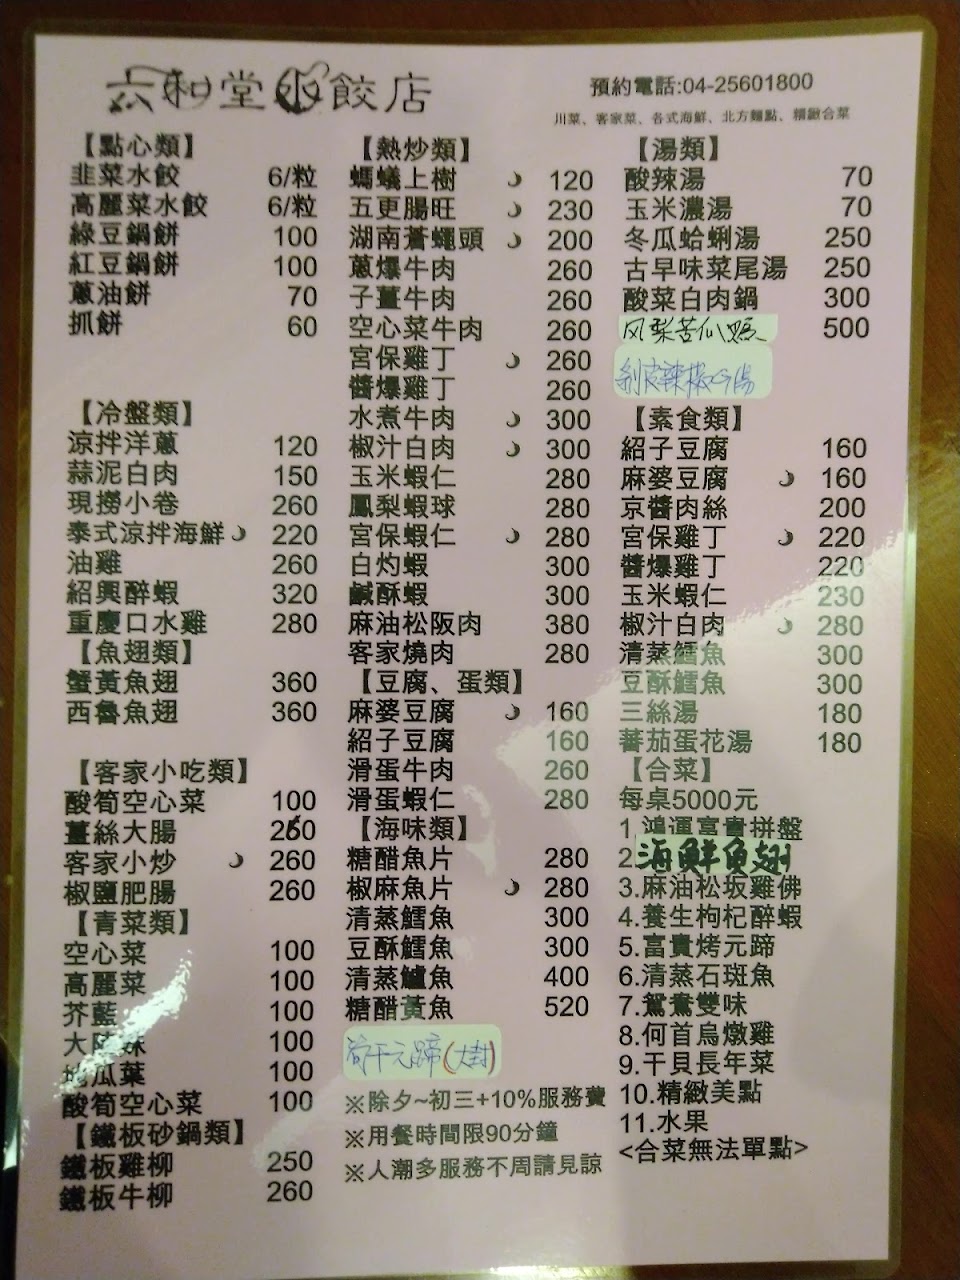 六和堂水餃店
預約電話:04-25601800
川菜、客家菜、各式海鮮、北方麵點、精緻合菜
【點心類】
韭菜水餃 6/粒
高麗菜水餃 6/粒
綠豆鍋餅 100
紅豆鍋餅 100
蔥油餅 70
抓餅 60
【冷盤類】
涼拌洋蔥 120
蒜泥白肉 150
現撈小卷 260
泰式涼拌海鮮 220
油雞 260
紹興醉蝦 320
重慶口水雞 280
【魚翅類】
蟹黃魚翅 360
西魯魚翅 360
【客家小吃類】
酸筍空心菜 100
薑絲大腸 260
客家小炒 260
椒鹽肥腸 260
【青菜類】
空心菜 100
高麗菜 100
芥藍 100
大陸妹 100
地瓜葉 100
酸筍空心菜 100
【鐵板砂鍋類】
鐵板雞柳 250
鐵板牛柳 260
【熱炒類】
螞蟻上樹 120
五更腸旺 230
湖南蒼蠅頭 200
蔥爆牛肉 260
子薑牛肉 260
空心菜牛肉 260
宮保雞丁 260
醬爆雞丁 260
水煮牛肉 300
椒汁白肉 300
玉米蝦仁 280
鳳梨蝦球 280
宮保蝦仁 280
白灼蝦 300
鹹酥蝦 300
麻油松阪肉 380
客家燒肉 280
【豆腐、蛋類】
麻婆豆腐 160
紹子豆腐 160
滑蛋牛肉 260
滑蛋蝦仁 280
【海味類】
糖醋魚片 280
椒麻魚片 280
清蒸鱈魚 300
豆酥鱈魚 300
清蒸鱸魚 400
糖醋黃魚 520
筍干元蹄(大封)
※除夕~初三+10%服務費
※用餐時間限90分鐘
※人潮多服務不周請見諒
【湯類】
酸辣湯 70
玉米濃湯 70
冬瓜蛤蜊湯 250
古早味菜尾湯 250
酸菜白肉鍋 300
凤梨苦瓜雞 500
剝皮辣椒湯
【素食類】
紹子豆腐 160
麻婆豆腐 160
京醬肉絲 200
宮保雞丁 220
醬爆雞丁 220
玉米蝦仁 230
椒汁白肉 280
清蒸鱈魚 300
豆酥鱈魚 300
三絲湯 180
蕃茄蛋花湯 180
【合菜】
每桌5000元
1.鴻運富貴拼盤
2.海鮮魚翅
3.麻油松坂雞佛
4.養生枸杞醉蝦
5.富貴烤元蹄
6.清蒸石斑魚
7.鴛鴦雙味
8.何首烏燉雞
9.干貝長年菜
10.精緻美點
11.水果
<合菜無法單點>